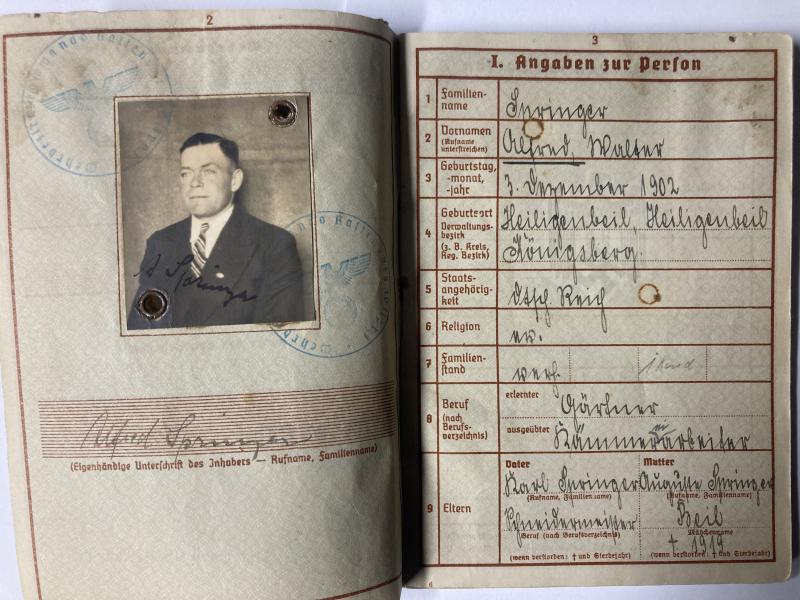 2
A Springer
Alfred Springer
(Eigenhändige Unterschrift des Inhabers — Rufname, Familienname)
3
I. Angaben zur Person
1 Familien-
name
Springer
2 Vornamen
(Rufname
unterstreichen)
Alfred, Walter
3 Geburtstag,
-monat,
-jahr
3. Dezember 1902
4 Geburtsort
Verwaltungs-
bezirk
(z. B. Kreis,
Reg. Bezirk)
Heiligenbeil, Heiligenbeil
Königsberg.
5 Staats-
angehörig-
keit
Dtsch. Reich
6 Religion
ev.
7 Familien-
stand
verh. 1 Kind
8 Beruf
(nach
Berufs-
verzeichnis)
erlernter Gärtner
ausgeübter Kämmereiarbeiter
9 Eltern
Vater Mutter
Karl Springer Auguste Springer
(Rufname, Familienname) (Rufname, Familienname)
Schneidermeister Beil
Beruf (nach Berufsverzeichnis) Mädchenname
† 1919
(wenn verstorben: † und Sterbejahr) (wenn verstorben: † und Sterbejahr)